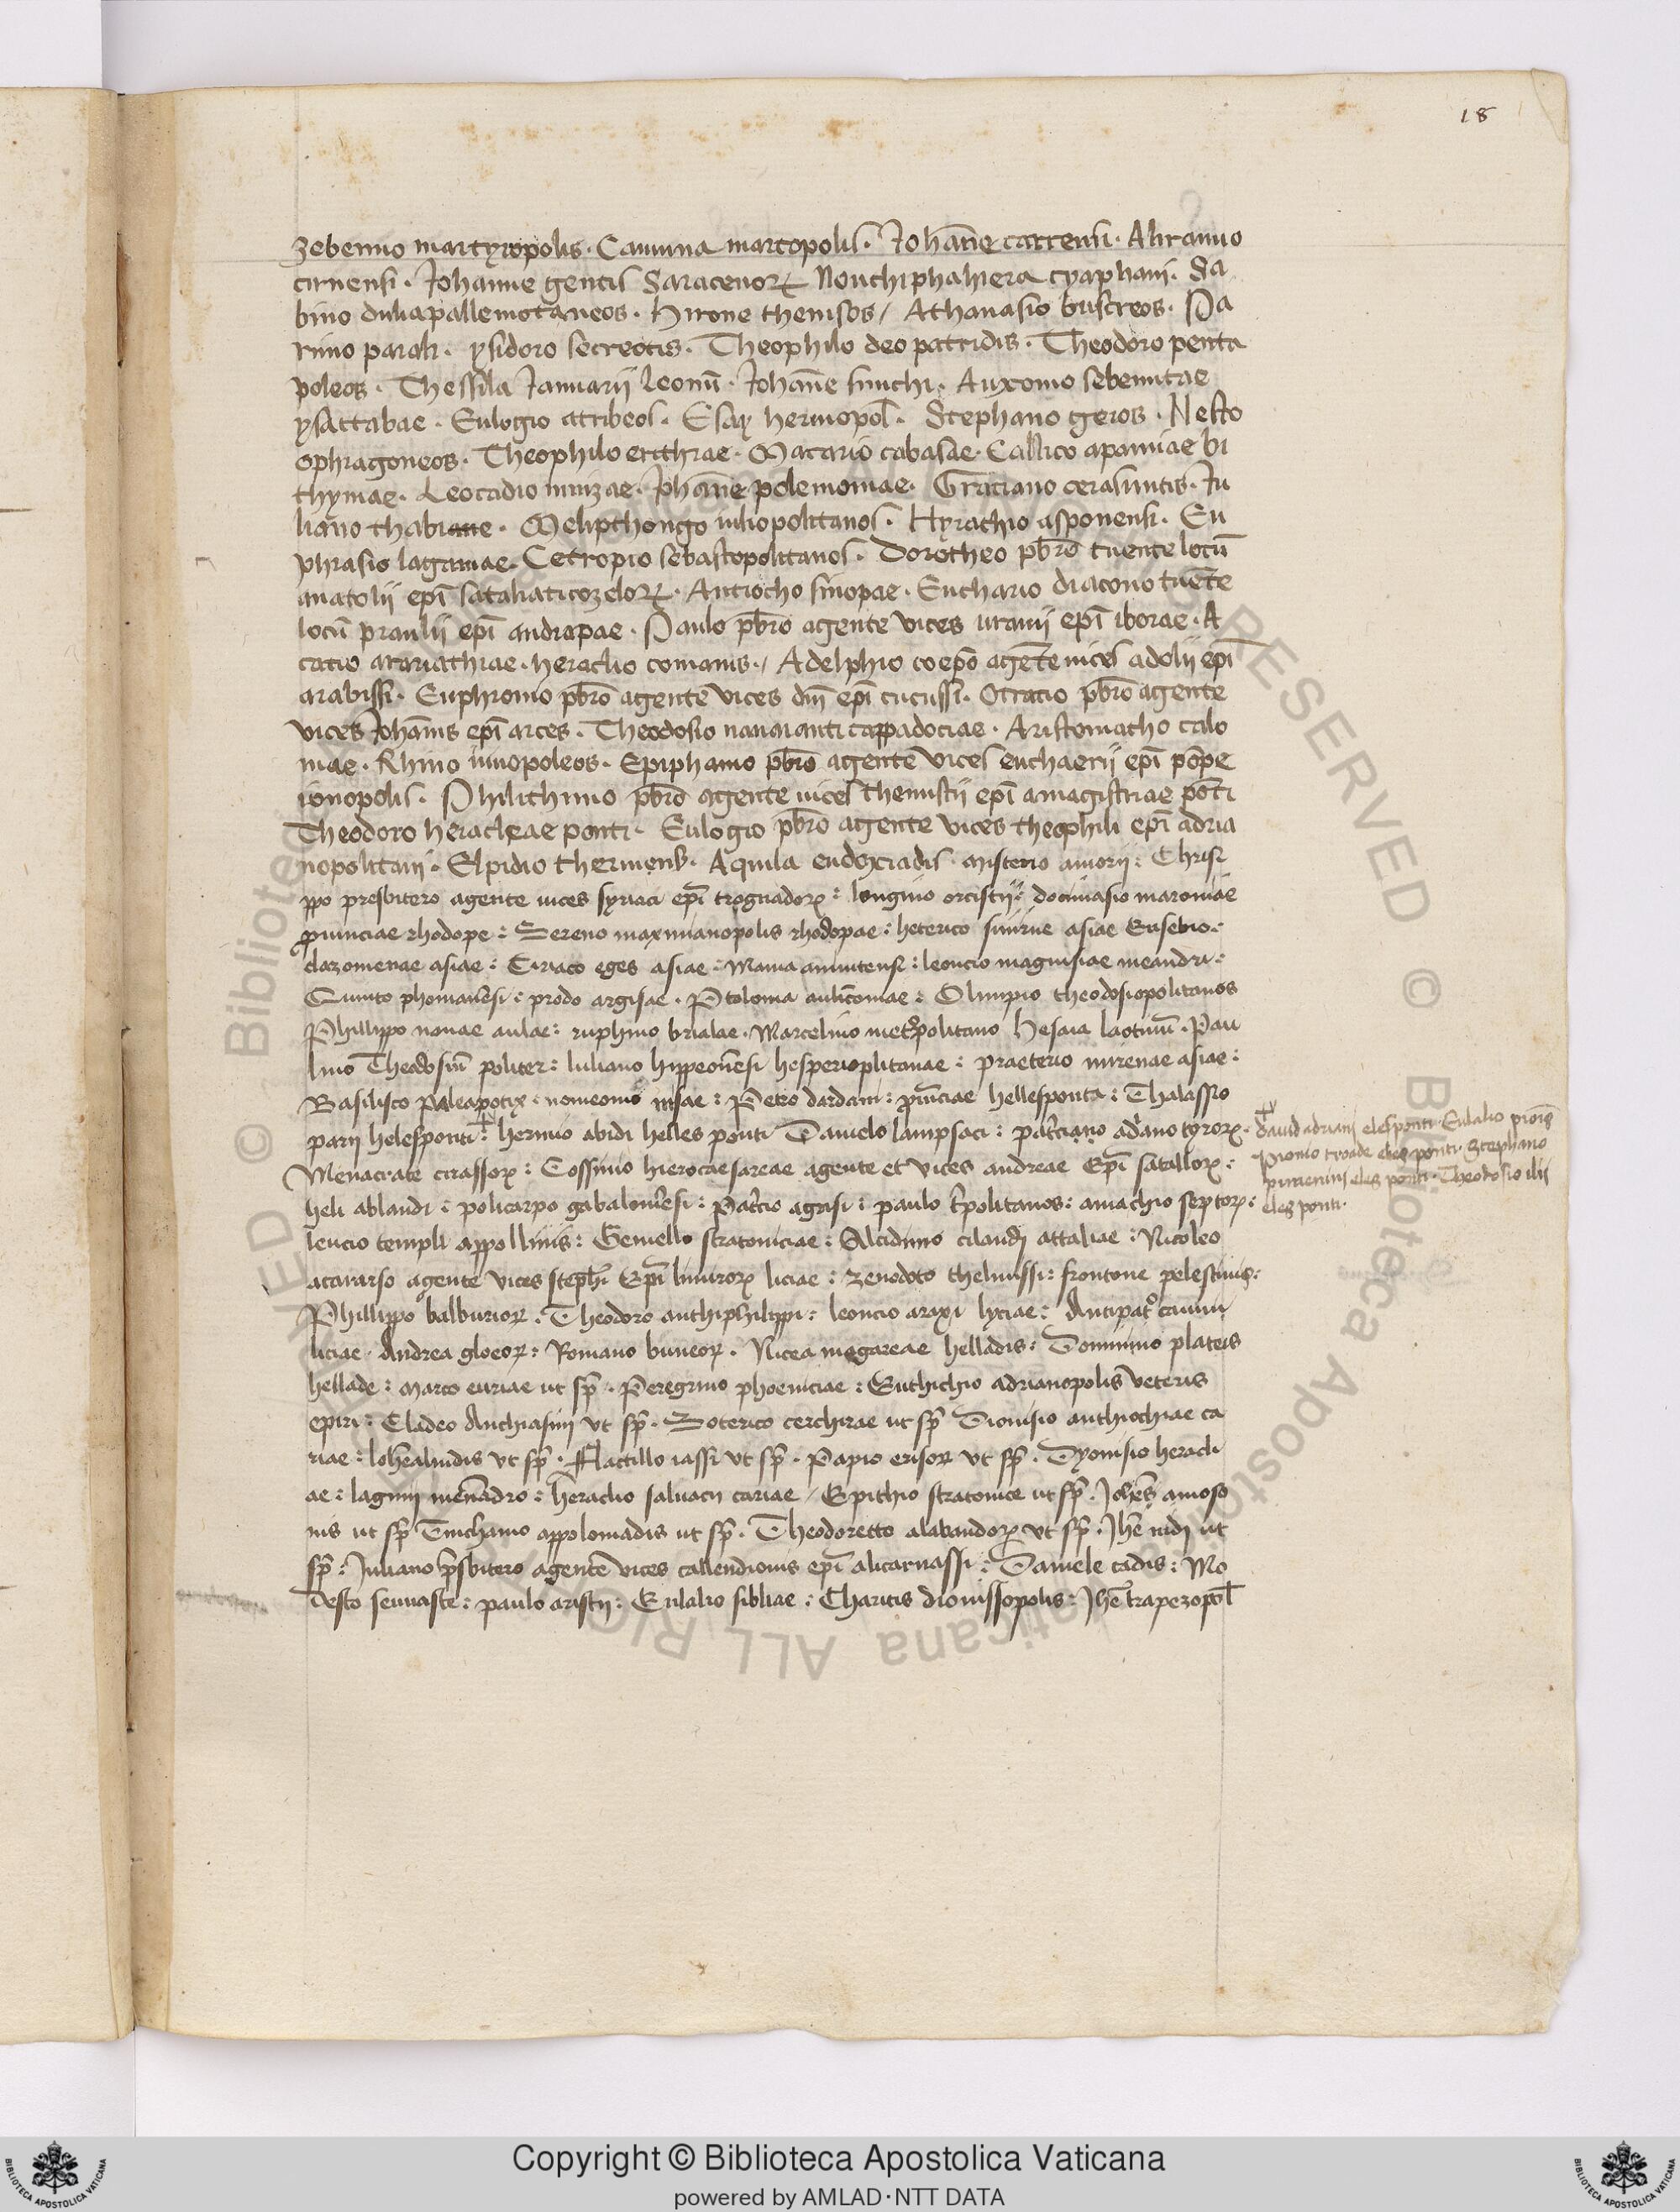 18
zebenno martyropolis · Camma martopolis · Johāne carrensi · Abramo
circensi · Johanne gentis Saracenoꝝ Nonchiphahiera cyaphani · Sa
bino duliapallemotaneos · Hirone thenisos / Athanasio bustreos · Pa
rimo parali · ysidoro secreotis · Theophilo deo patridis · Theodoro penta
poleos · Thessila Januarii leonū · Johāne simchi · Auxonio sebennitae
ysattabae · Eulogio atribeos · Esay hermopol̄ · Stephano geros · Nesto
ophragoneos · Theophilo erithrae · Macario cabasae · Callico apamiae bi
thyniae · Leocadio mnizae · Johāne polemoniae · Graciano cerasuntis · Ju
liano thabiane · Melipthongo iuliopolitanos · Hyrachio asponensi · Eu
phrasio laganiae · Cetropio sebastopolitanos · Dorotheo pb̄ro tuente locū
anatolii ep̄i sataliaticozeloꝝ · Antiocho sinopae · Euthario diacono tuēte
locū praulii ep̄i andrapae · Paulo pb̄ro agente vices uranii ep̄i iborae · A
catio arariathiae · heraclio comanis · / Adelphio coep̄o agēte uices adolii ep̄i
arabissi · Euphronio pb̄ro agente vices dm̄ ep̄i cucussi · Otracio pb̄ro agente
vices Johānis ep̄i arces · Theodosio nanananti cappadociae · Aristomacho calo
niae · Rhino iunopoleos · Epiphanio pb̄ro agente vices euchaerii ep̄i pōpe
ionopolis · Philithimo pb̄ro agente uices themistii ep̄i amagistriae pōti
Theodoro heracleae ponti · Eulogio pb̄ro agente vices theophili ep̄i adria
nopolitani · Elpidio thermens̄ · Aquila eudoxiadis · misterio amorii : Chrisi
ppo presbitero agente uices syriaci ep̄i trognadoꝝ : longino orcistii : docimasio maroniae
prouinciae rhodope : Sereno maximianopolis rhodopae : heterico smirne asiae Eusebio ·
clazomenae asiae : Ciriaco eges asiae : Mama aninitensi : leoncio magnisiae meandri :
Quinto phomanēsi : prodo argisae · Ptoloma aulicomae : Olimpio theodosiopolitanos
Phillippo nouae aulae : ruphino brialae · Marcelino met̄politano Hesaia laotinū · Pau
lino Theodosiū politer : Iuliano hippeonēsi hesperioplitanae : praeterio mirenae asiae :
Basilisco paleapotix · nomeonio insae : Petro dardani : prouīciae hellesponti : Thalassio
parii helesponti : hermio abidi helles ponti Danielo lampsaci : patriciano adriano tyroꝝ ·
Menacrate cirassoꝝ : Cossinio hierocaesareae agente et vices andreae Ep̄i satalloꝝ :
heli ablandi : policarpo gabalonēsi : Patricio agrisi : paulo tripolitanos : amachio septoꝝ :
leucio templi appollinis : Gemello stratoniciae : Alcidimo cilandi attaliae : Nicoleo
acararso agente vices steph̄i Ep̄i limiroꝝ liciae : Zenodoto thelmissi : frontone pelestinis :
Phillippo balburioꝝ · Theodoro anthiphilippi : leoncio araxi lyciae : Antipatro cauni
liciae · Andrea gloeoꝝ : Romano buneoꝝ · Nicea megareae helladis : Domnino plateis
hellade : marco euriae ut sp̄ · Peregrino phoeniciae : Euthichio adrianopolis veteris
epiri : Cladeo Anchiasmi vt sp̄ · Soterico cerchirae ut sp̄ Dionisio anthiochiae ca
riae : Ioh̄ealindis vt sp̄ · Flactillo iassi vt sp̄ · Papio erisoꝝ vt sp̄ · Dyonisio heracli
ae : lagmii menādro : heraclio saluacii cariae / Epithio stratonice ut sp̄ · Joh̄es amoso
nis ut sp̄ Tinchanio appoloniadis ut sp̄ · Theodoretto alabandoꝝ vt sp̄ · Jh̄e nidi ut
sp̄ : Juliano p̄sbitero agente vices callendionis ep̄i alicarnassi : Daniele cadis : Mo
desto seuuaste : paulo aristii : Eulalio sibliae : Charitis dionissopolis : Jh̄e trapezopol̄
david adriani elesponti · Eulalio pionis
Pionio troade eles ponti · Stephano
pimenini eles ponti · Theodosio ilii
eles ponti ·
Copyright © Biblioteca Apostolica Vaticana
powered by AMLAD·NTT DATA